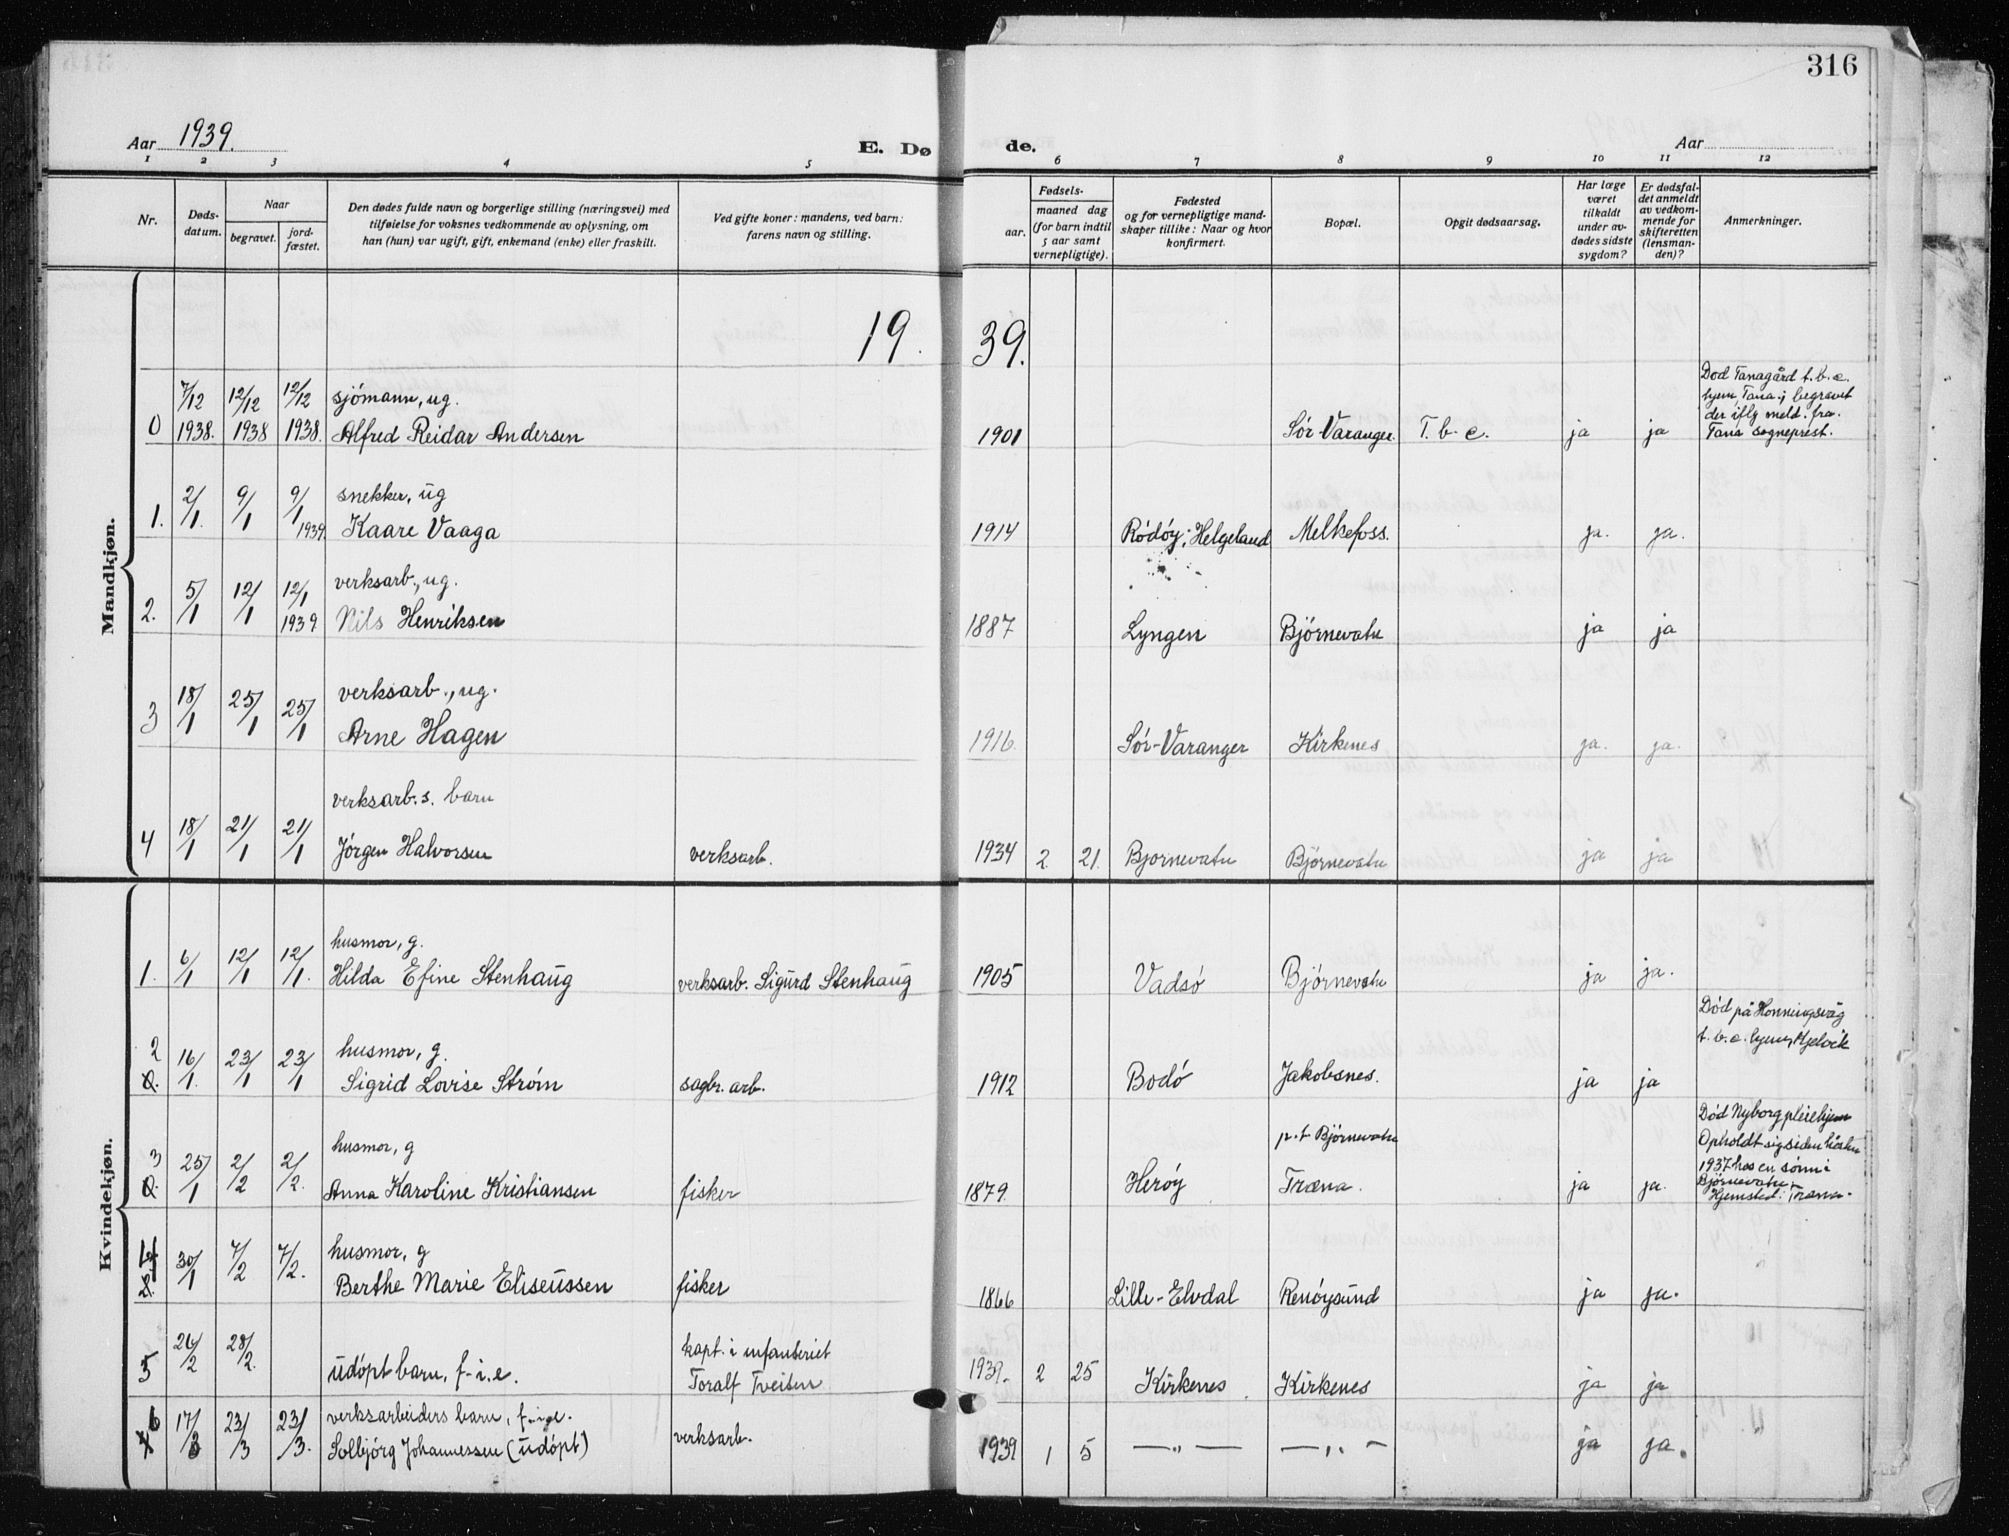 316
Aar 1939.
E. Dø
de.
Aar
1 2 3 4 5 6 7 8 9 10 11 12
Nr.
Døds-
datum.
Naar
begravet.
jord-
fæstet.
Den dødes fulde navn og borgerlige stilling (næringsvei) med
tilføielse for voksnes vedkommende av oplysning, om
han (hun) var ugift, gift, enkemand (enke) eller fraskilt.
Ved gifte koner: mandens, ved barn:
farens navn og stilling.
Fødsels-
aar.
maaned dag
(for barn indtil
5 aar samt
vernepligtige).
Fødested
og for vernepligtige mand-
skaper tillike: Naar og hvor
konfirmert.
Bopæl.
Opgit dødsaarsag.
Har læge
været
tilkaldt
under av-
dødes sidste
sygdom?
Er dødsfal-
det anmeldt
av vedkom-
mende for
skifteretten
(lensman-
den)?
Anmerkninger.
Mandkjøn.
19. 39.
0 7/12 1938. 12/12 1938 12/12 1938. sjómann, ug.
Alfred Reidar Andersen 1901 Sór-Varanger. T.b.c. ja ja
Dod Tanagård t.b.c.
hjem, Tana; begravet
der iflg meld. fra.
Tana sogneprest.
1. 2/1. 9/1 9/1 1939. snekker, ug
Kaare Vaaga 1914 Ródóy, Helgeland Melkefoss. ja. ja.
2. 5/1 12/1 12/1 1939 verksarb., ug.
Nils Henriksen 1887 Lyngen Bjórnevatn ja ja
3 18/1 25/1 25/1 verksarb., ug.
Arne Hagen 1916. Sór-Varanger Kirkenes ja. ja.
4 18/1 21/1 21/1 verksarb.s. barn
Jórgen Halvorsen verksarb. 1934 2 21. Bjornevatn Bjórnevatn ja ja
Kvindekjøn.
1. 6/1 12/1 12/1. husmor, g.
Hilda Efine Stenhaug verksarb. Sigurd Stenhaug 1905 Vadsó Bjórnevatn ja ja.
2 16/1. 23/1 23/1 husmor, g.
Sigrid Lovise Stróm sagbr. arb. 1912 Bodó Jakobsnes. ja ja
Dód på Honningsvåg
t.b.c. hjem, Kjelvik
3 25/1 2/2 2/2. husmor, g
Anna Karoline Kristiansen fisker 1879. Heróy p.t Bjórnevatn
Træna. ja ja.
Dód Nyborg pleiehjem
Opholdt sig siden hósten
1937 hos en sónn i
Bjórnevatn
Hjemsted: Træna.
4 30/1 7/2 7/2. husmor, g
Berthe Marie Eliseussen fisker 1866 Lille-Elvdal Renóysund ja ja.
5 26/2 28/2. udópt barn, f.i.e. kapt. i infanteriet
Toralf Tveiten 1939. 2 25 Kirkenes Kirkenes ja ja
6 17/3 23/3 23/3. verksarbeiders barn,
Solbjórg Johannessen (udópt) verksarb. 1939 1 5 — „ — — „ — ja ja.